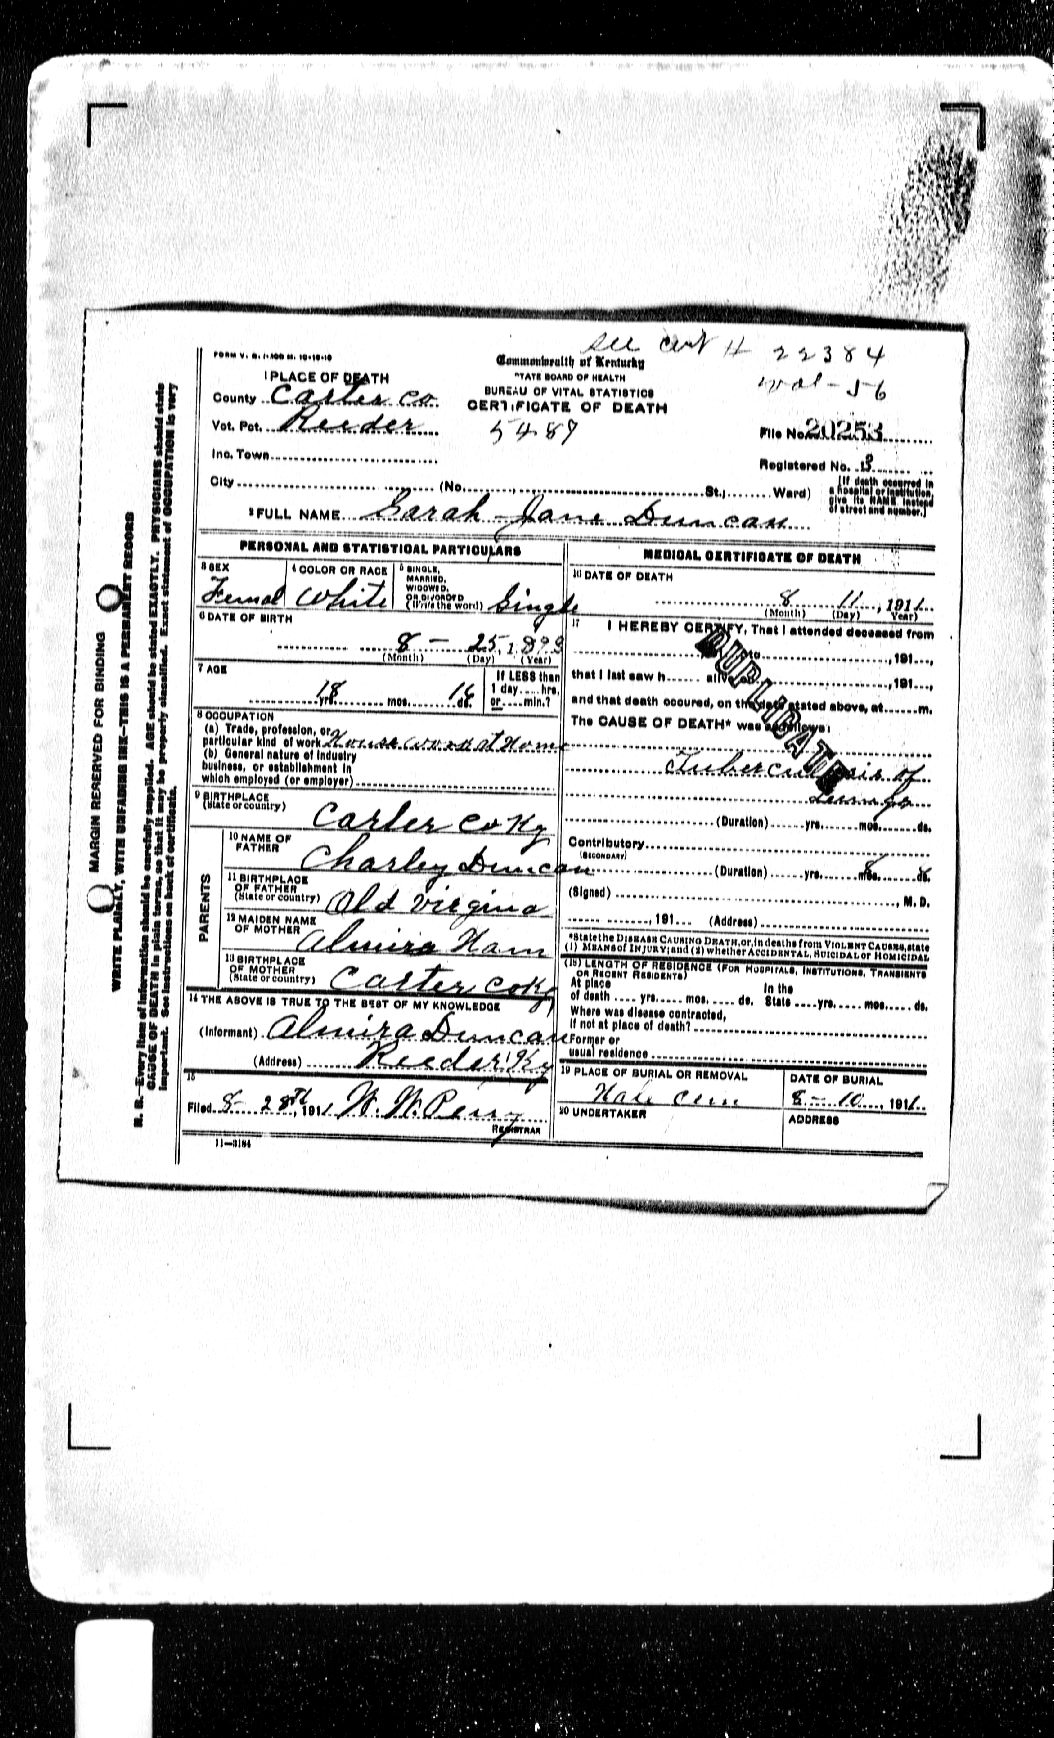 See Cert # 22384
vol - 56
FORM V. S. 1-100 M. 10-18-10
Commonwealth of Kentucky
STATE BOARD OF HEALTH
BUREAU OF VITAL STATISTICS
CERTIFICATE OF DEATH
5487
1 PLACE OF DEATH
County Carter Co
Vot. Pct. Reeder
Inc. Town
City (No. , St.; Ward)
File No. 20253
Registered No. 3
[If death occurred in a hospital or institution, give its NAME instead of street and number.]
2 FULL NAME Sarah Jane Duncan
PERSONAL AND STATISTICAL PARTICULARS
3 SEX Femal
4 COLOR OR RACE White
5 SINGLE, MARRIED, WIDOWED, OR DIVORCED (Write the word) Single
6 DATE OF BIRTH
8 - 25, 1893
(Month) (Day) (Year)
7 AGE
18 yrs. mos. 16 ds.
If LESS than 1 day hrs. or min.?
8 OCCUPATION
(a) Trade, profession, or
particular kind of work House work at Home
(b) General nature of industry
business, or establishment in
which employed (or employer)
9 BIRTHPLACE
(State or country) Carter Co Ky
PARENTS
10 NAME OF FATHER Charley Duncan
11 BIRTHPLACE OF FATHER (State or country) Old Virgina
12 MAIDEN NAME OF MOTHER Almira Ham
13 BIRTHPLACE OF MOTHER (State or country) Carter Co Ky
14 THE ABOVE IS TRUE TO THE BEST OF MY KNOWLEDGE
(Informant) Almira Duncan
(Address) Reeder Ky
15
Filed 8 - 28th, 1911 W. W. Perry
REGISTRAR
11—3184
MEDICAL CERTIFICATE OF DEATH
16 DATE OF DEATH
8 11, 1911
(Month) (Day) (Year)
17 I HEREBY CERTIFY, That I attended deceased from
, 191 , to , 191 ,
that I last saw h alive on , 191 ,
and that death occured, on the date stated above, at m.
The CAUSE OF DEATH* was as follows:
DUPLICATE
Tuberculosis of
Lungs
(Duration) yrs. mos. ds.
Contributory
(SECONDARY)
(Duration) yrs. 8 mos. 8 ds.
(Signed) , M. D.
, 191 (Address)
*State the DISEASE CAUSING DEATH, or, in deaths from VIOLENT CAUSES, state
(1) MEANS of INJURY; and (2) whether ACCIDENTAL, SUICIDAL or HOMICIDAL
(18) LENGTH OF RESIDENCE (FOR HOSPITALS, INSTITUTIONS, TRANSIENTS
OR RECENT RESIDENTS)
At place of death yrs. mos. ds. In the State yrs. mos. ds.
Where was disease contracted,
if not at place of death?
Former or
usual residence
19 PLACE OF BURIAL OR REMOVAL
DATE OF BURIAL
8 - 10, 1911
20 UNDERTAKER
ADDRESS
MARGIN RESERVED FOR BINDING
WRITE PLAINLY, WITH UNFADING INK—THIS IS A PERMANENT RECORD
N. B.—Every item of information should be carefully supplied. AGE should be stated EXACTLY. PHYSICIANS should state
CAUSE OF DEATH in plain terms, so that it may be properly classified. Exact statement of OCCUPATION is very
important. See instructions on back of certificate.